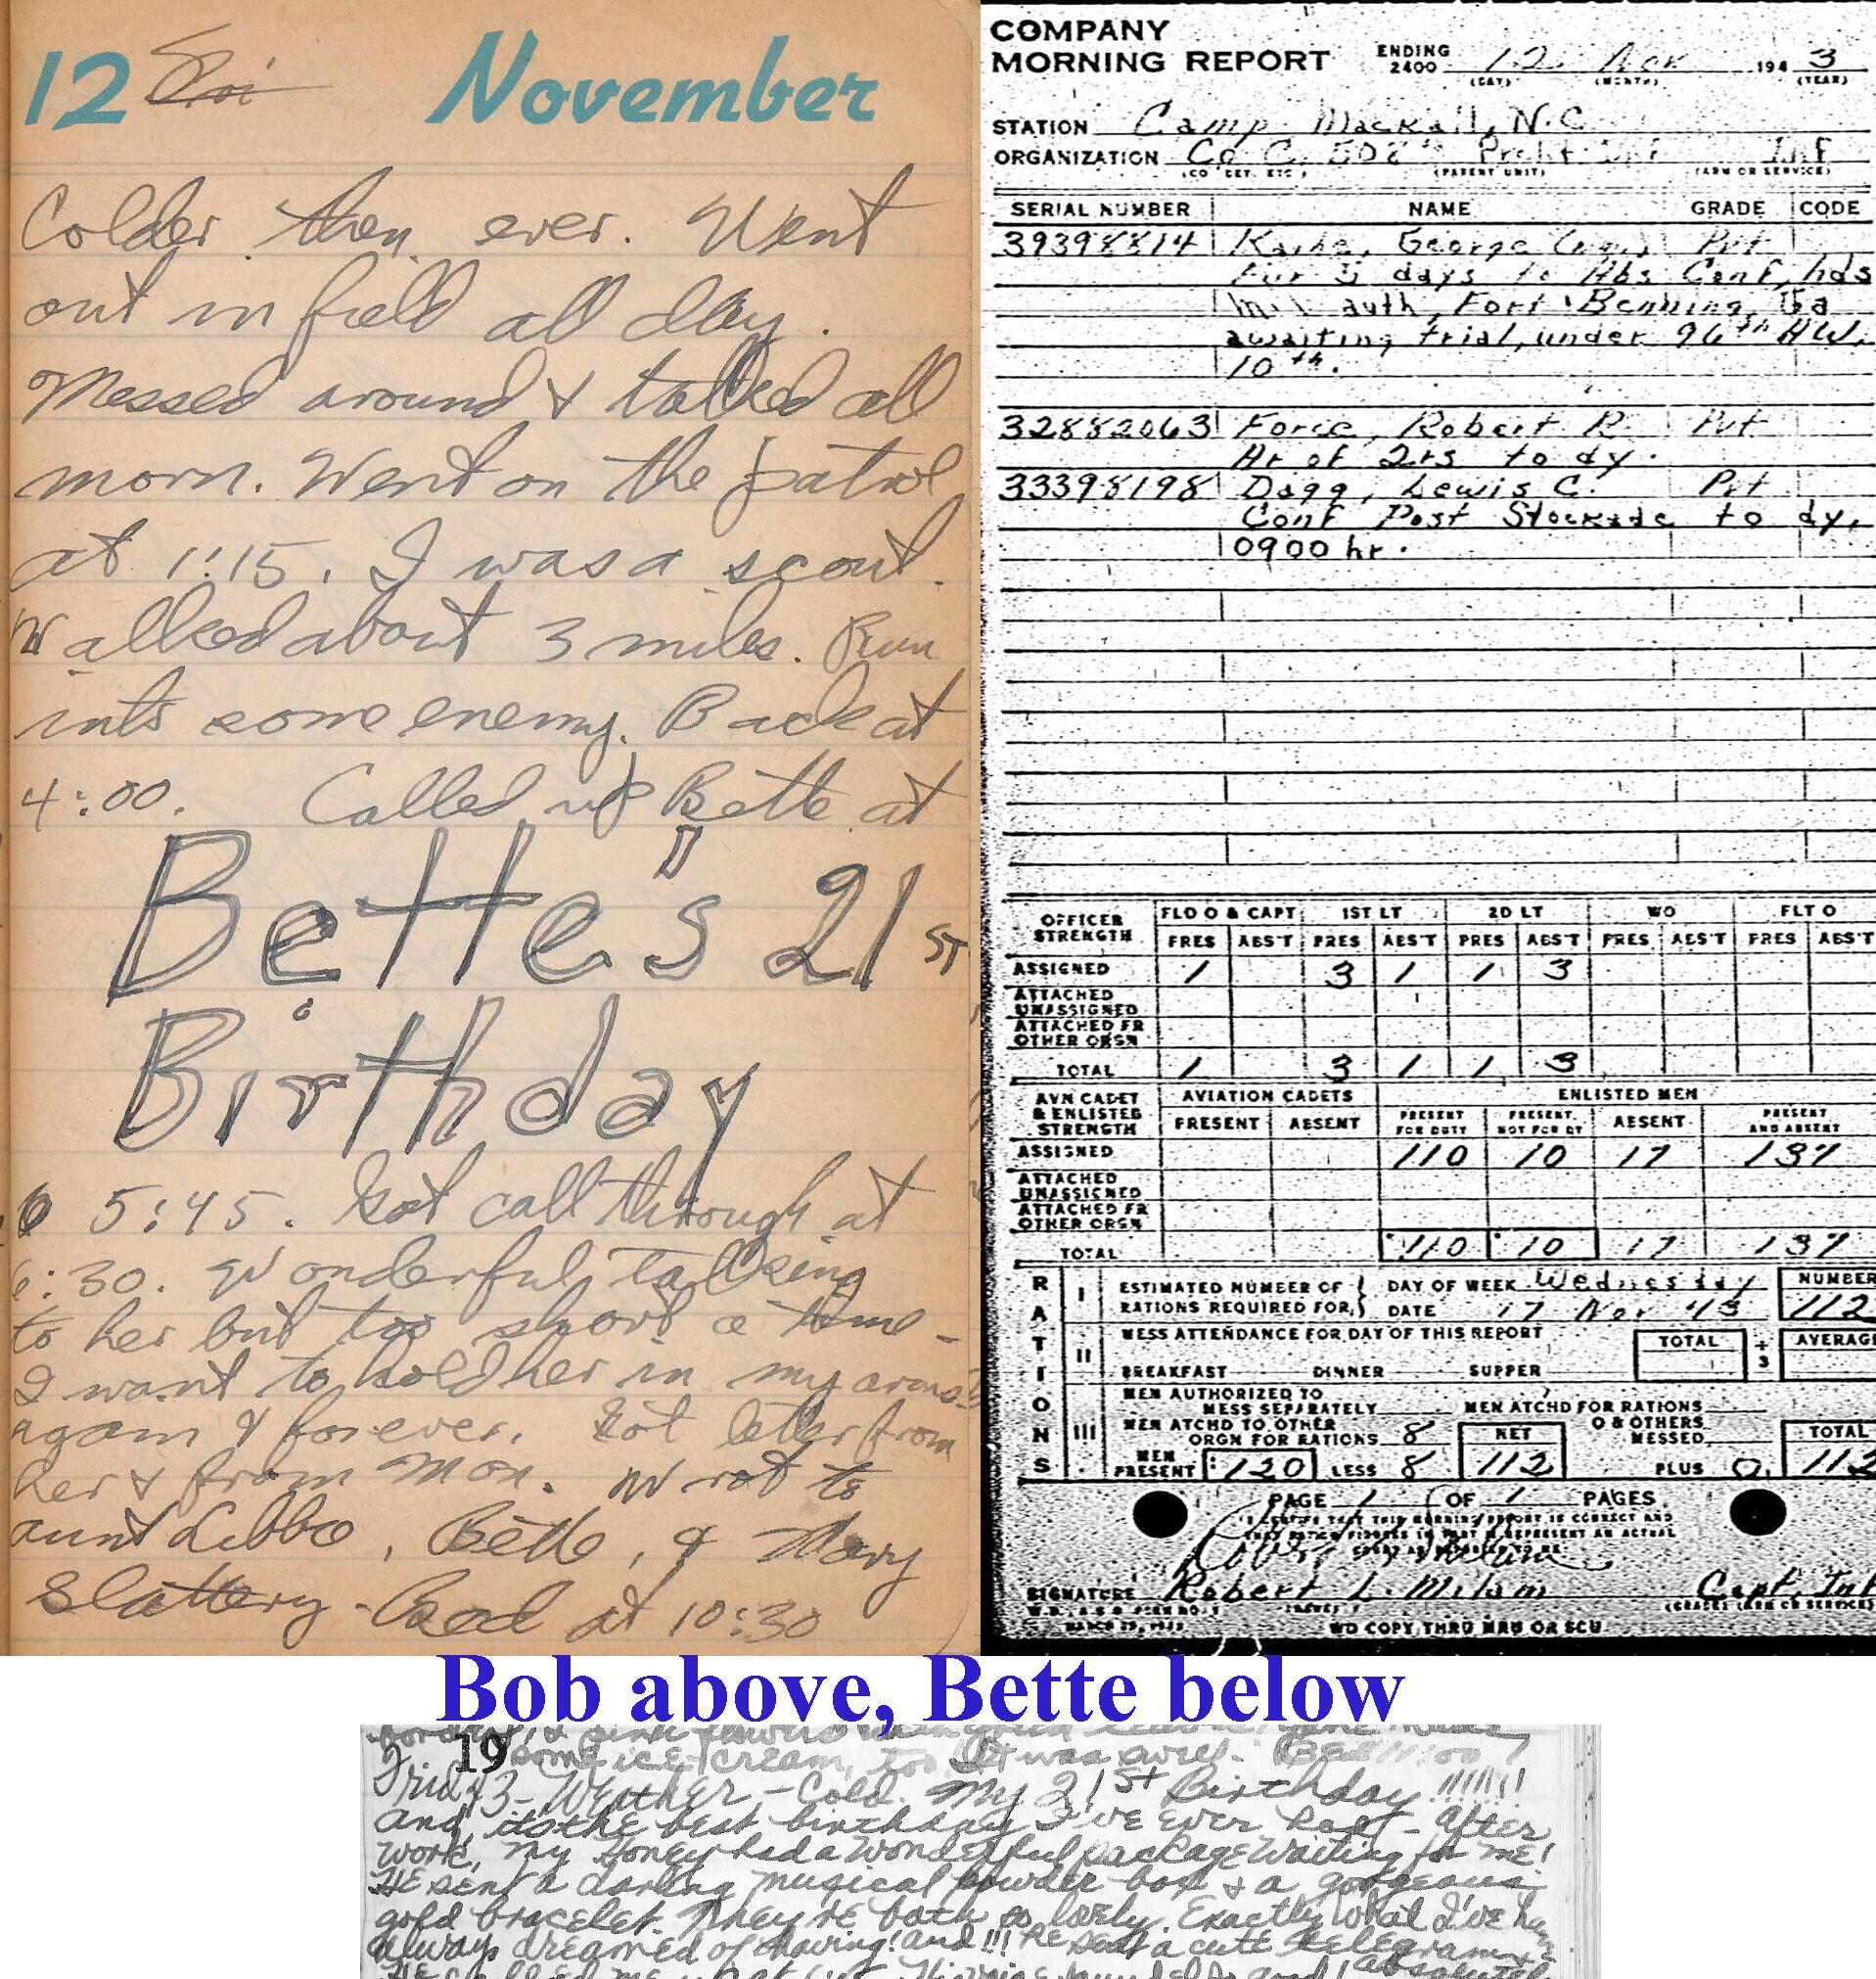 12 Fri November
Colder then ever. Went
out in field all day.
Messed around & talked all
morn. Went on the patrol
at 1:15. I was a scout.
Walked about 3 miles. Run
into some enemy. Back at
4:00. Called up Bette at
Bette's 21ST
Birthday
5:45. Got call through at
6:30. Wonderful talking
to her but too short a time-
I want to hold her in my arms
again & forever. Got letter from
her & from Mom. Wrot to
aunt Libbo, Bette, & Mary
Slattery. Bed at 10:30
COMPANY
MORNING REPORT ENDING 2400 12 Nov 194 3
(DAY) (MONTH) (YEAR)
STATION Camp Mackall, N.C
ORGANIZATION Co C, 508th Prcht Inf Inf
(CO DET. ETC.) (PARENT UNIT) (ARM OR SERVICE)
SERIAL NUMBER NAME GRADE CODE
39398814 George Pvt
Fur 3 days to Abs Conf, hds
Mil auth, Fort Benning, Ga
awaiting trial, under 96th AW.
10th.
32882063 Force, Robert R. Pvt
Ar of 2rs to dy.
33398198 Dagg, Lewis C. Pvt
Conf Post Stockade to dy,
0900 hr.
OFFICER STRENGTH FLD O & CAPT 1ST LT 2D LT WO FLT O
PRES ABS'T PRES ABS'T PRES ABS'T PRES ABS'T PRES ABS'T
ASSIGNED 1 3 1 1 3
ATTACHED UNASSIGNED
ATTACHED FR OTHER ORGN
TOTAL 1 3 1 1 3
AVN CADET & ENLISTED STRENGTH AVIATION CADETS ENLISTED MEN
PRESENT ABSENT PRESENT FOR DUTY PRESENT NOT FOR DY ABSENT PRESENT AND ABSENT
ASSIGNED 110 10 17 137
ATTACHED UNASSIGNED
ATTACHED FR OTHER ORGN
TOTAL 110 10 17 137
RATIONS
I ESTIMATED NUMBER OF RATIONS REQUIRED FOR DAY OF WEEK Wednesday NUMBER
DATE 17 Nov 43 112
II MESS ATTENDANCE FOR DAY OF THIS REPORT TOTAL ÷ 3 AVERAGE
BREAKFAST DINNER SUPPER
III MEN AUTHORIZED TO MESS SEPARATELY MEN ATCHD FOR RATIONS
MEN ATCHD TO OTHER ORGN FOR RATIONS 8 NET O & OTHERS MESSED TOTAL
MEN PRESENT 120 LESS 8 112 PLUS 0 112
PAGE 1 OF 1 PAGES
I CERTIFY THAT THIS MORNING REPORT IS CORRECT AND
Robert L. Milam
SIGNATURE Robert L. Milam Capt. Inf
(NAME) (GRADE) (ARM OR SERVICE)
MARCH
WD COPY THRU MRU OR SCU
Bob above, Bette below
flowers
19 some ice cream, too. It was swell. BED 11:00
Frid 43 - Weather - Cold. My 21st Birthday !!!!!!!
and it's the best birthday I've ever had - After
work, my Honey had a wonderful package waiting for me!
He sent a darling musical powder box & a gorgeous
gold bracelet. They're both so lovely. Exactly what I've
always dreamed of having! And!!! He sent a cute telegram
absolutely